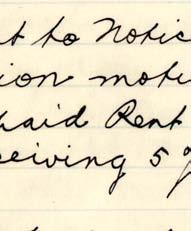 t to Notic
ion motio
paid Rent
ceiving 5 g